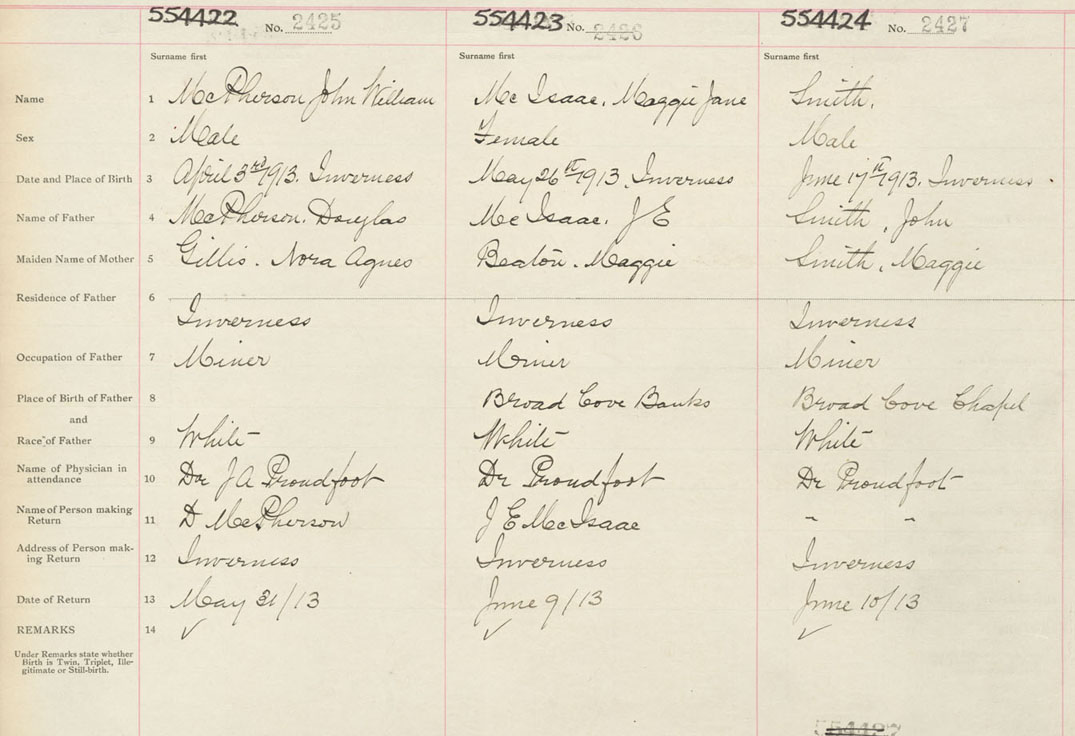 554422 No. 2425 554423 No. 2426 554424 No. 2427
Surname first Surname first Surname first
Name 1 McPherson John William Mc Isaac, Maggie Jane Smith,
Sex 2 Male Female Male
Date and Place of Birth 3 April 3rd 1913. Inverness May 26th 1913, Inverness June 17th 1913, Inverness
Name of Father 4 McPherson, Douglas Mc Isaac, J E Smith, John
Maiden Name of Mother 5 Gillis. Nora Agnes Beaton. Maggie Smith, Maggie
Residence of Father 6
Inverness Inverness Inverness
Occupation of Father 7 Miner Miner Miner
Place of Birth of Father 8 Broad Cove Banks Broad Cove Chapel
and
Race of Father 9 White White White
Name of Physician in
attendance 10 Dr J A Proudfoot Dr Proudfoot Dr Proudfoot
Name of Person making
Return 11 D McPherson J E McIsaac " "
Address of Person mak-
ing Return 12 Inverness Inverness Inverness
Date of Return 13 May 31/13 June 9/13 June 10/13
REMARKS 14 ✓ ✓ ✓
Under Remarks state whether
Birth is Twin, Triplet, Ille-
gitimate or Still-birth.